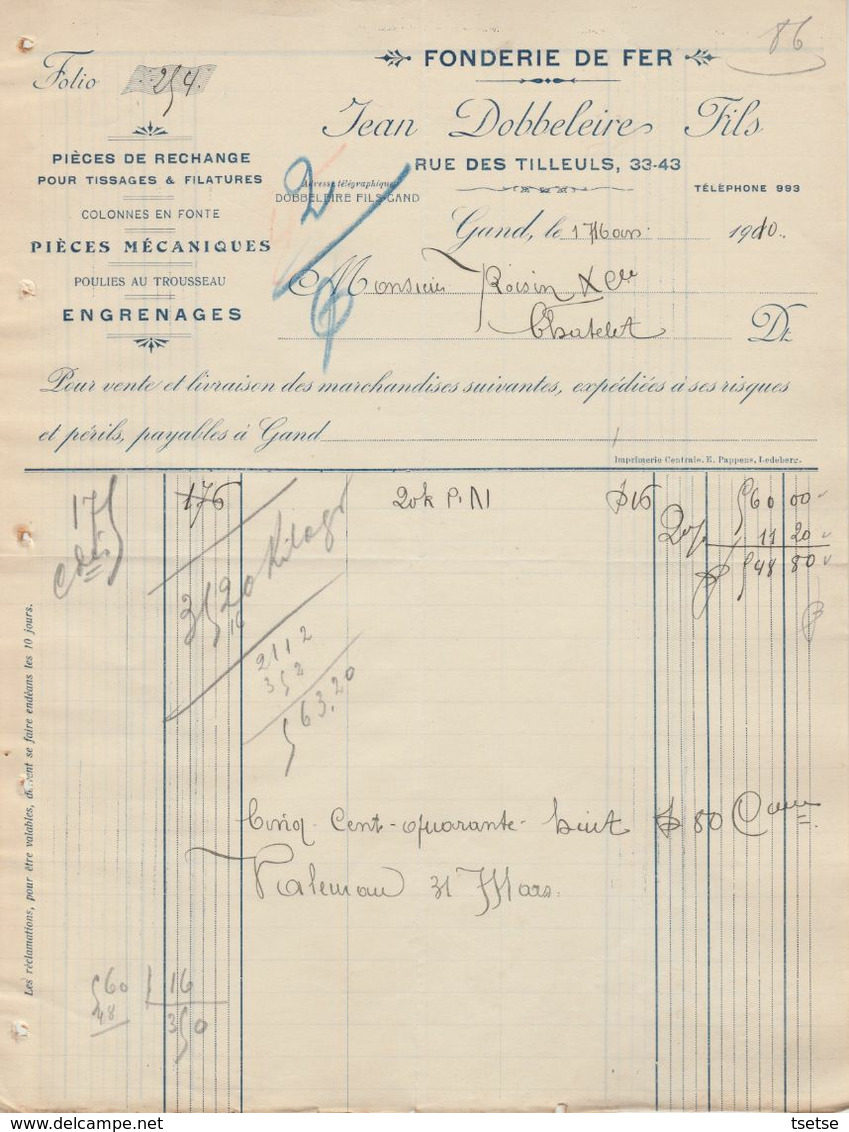 86
FONDERIE DE FER
Folio 254.
Jean Dobbeleire Fils
PIÈCES DE RECHANGE
POUR TISSAGES & FILATURES
RUE DES TILLEULS, 33-43
Adresse télégraphique
DOBBELEIRE FILS-GAND
TÉLÈPHONE 993
COLONNES EN FONTE
Gand, le 1 Mars 1910.
PIÈCES MÉCANIQUES
PIÈCES AU TROUSSEAU
Monsieur Roisin & Cie
ENGRENAGES
Chatelet Dt
Pour vente et livraison des marchandises suivantes, expédiées à ses risques
et périls, payables à Gand
Imprimerie Centrale, E. Pappens, Ledeberg.
175
176 20k P. N fs 16 560 00
2% 11 20
fs 548 80
3520 Kilogr
16
2112
352
563,20
Cinq-Cent-quarante-huit fs 80 Ces
Valeur au 31 Mars.
560 16
48 350
Les réclamations, pour être valables, doivent se faire endéans les 10 jours.
tsetse